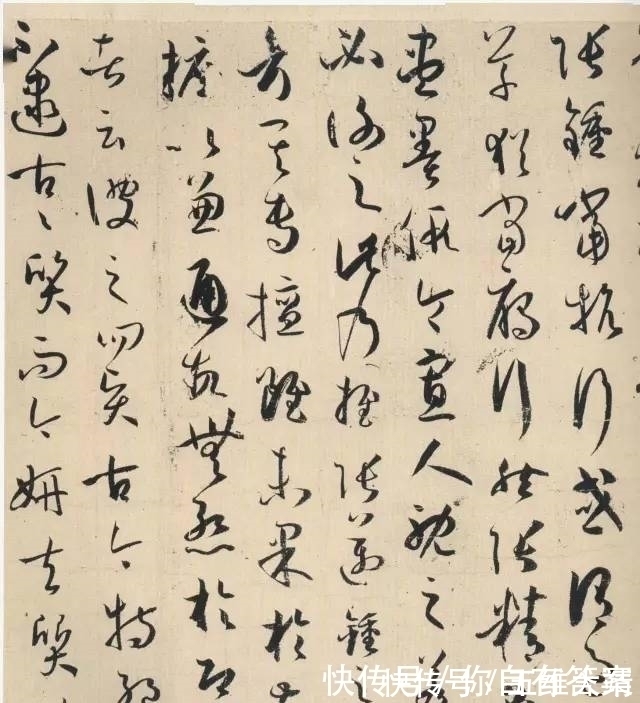 張鍾當抗行或謂
草猶當雁行然張精
盡墨假令寡人耽之若
必謝之此乃推張邁鍾之
考其專擅雖未果於
摭以兼通故無慙於即
者云彼之四賢古今特絕
不逮古〻質而今妍夫質
快传号/